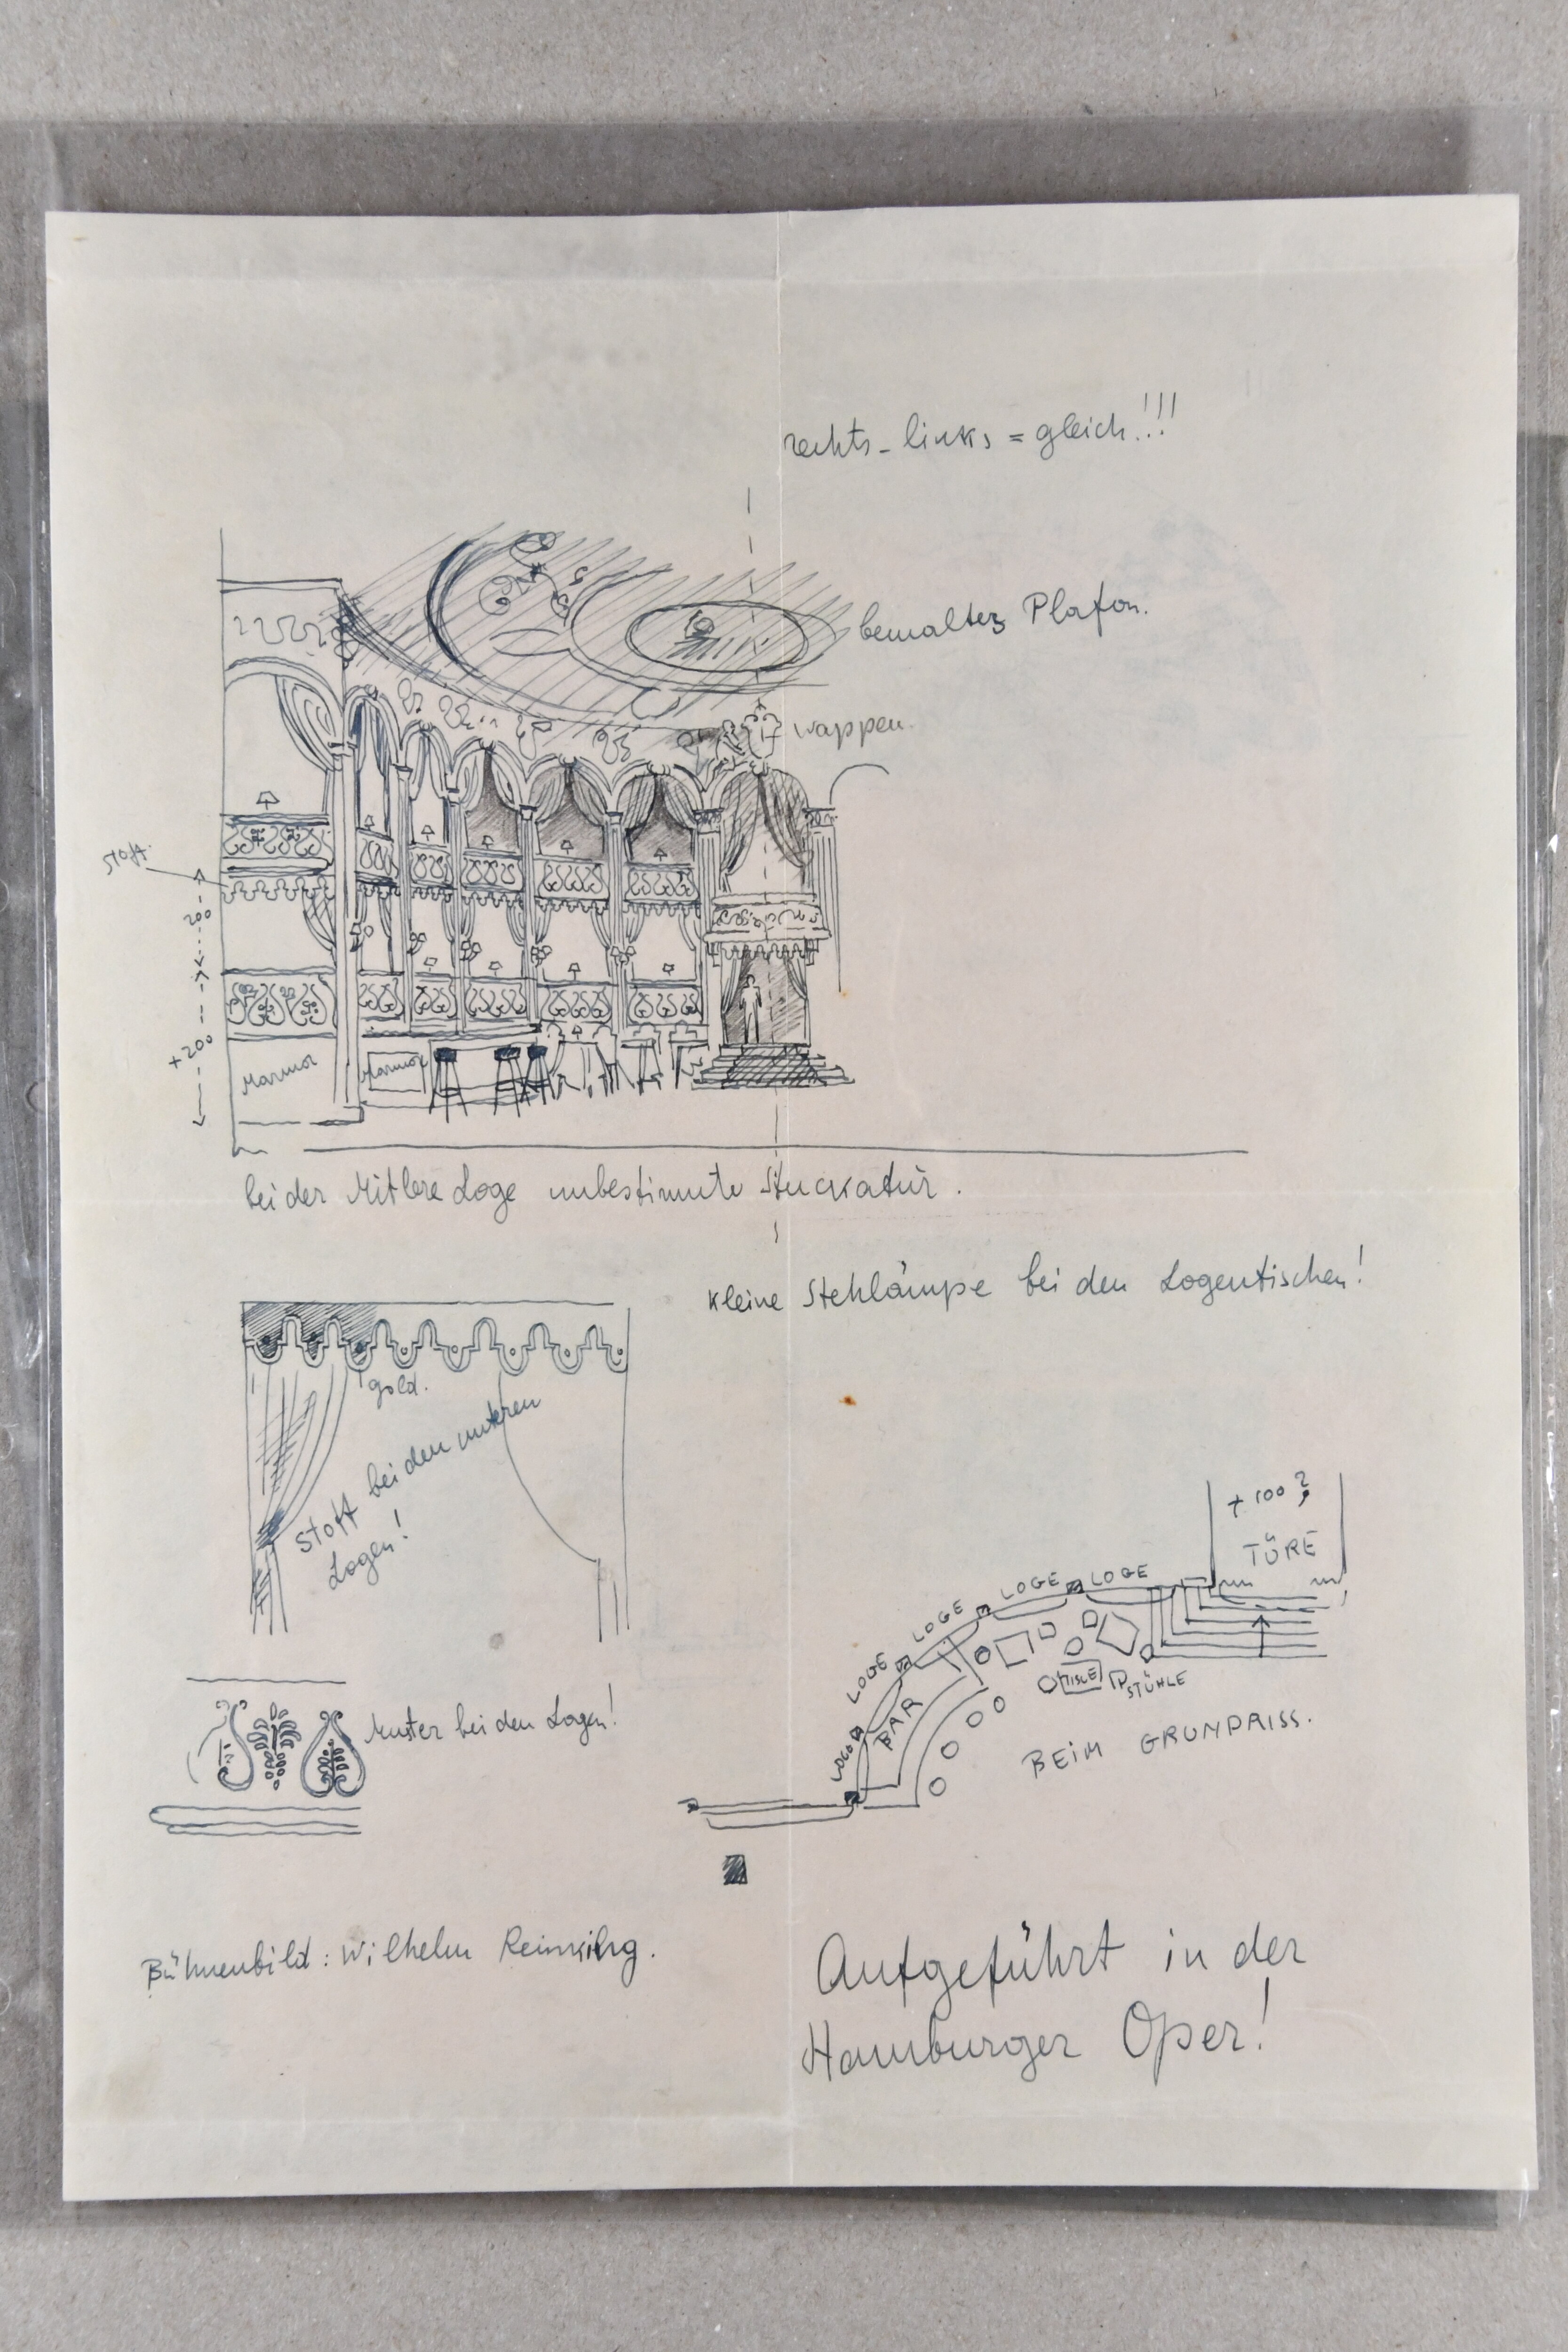 rechts - links = gleich!!!
bemalter Plafon.
Wappen.
Stoff.
200
+200
Marmor
Marmor
bei der Mitlere Loge unbestimmte Stuckatur.
kleine Stehlämpe bei den Logentischen!
gold.
Stoff bei den unteren
Logen!
+100?
TÜRE
LOGE
LOGE
LOGE
LOGE
LOGE
BAR
TISCE
STÜHLE
BEIM GRUNDRISS.
Muster bei den Logen!
Bühnenbild: Wilhelm Reinking.
Aufgeführt in der
Hamburger Oper!